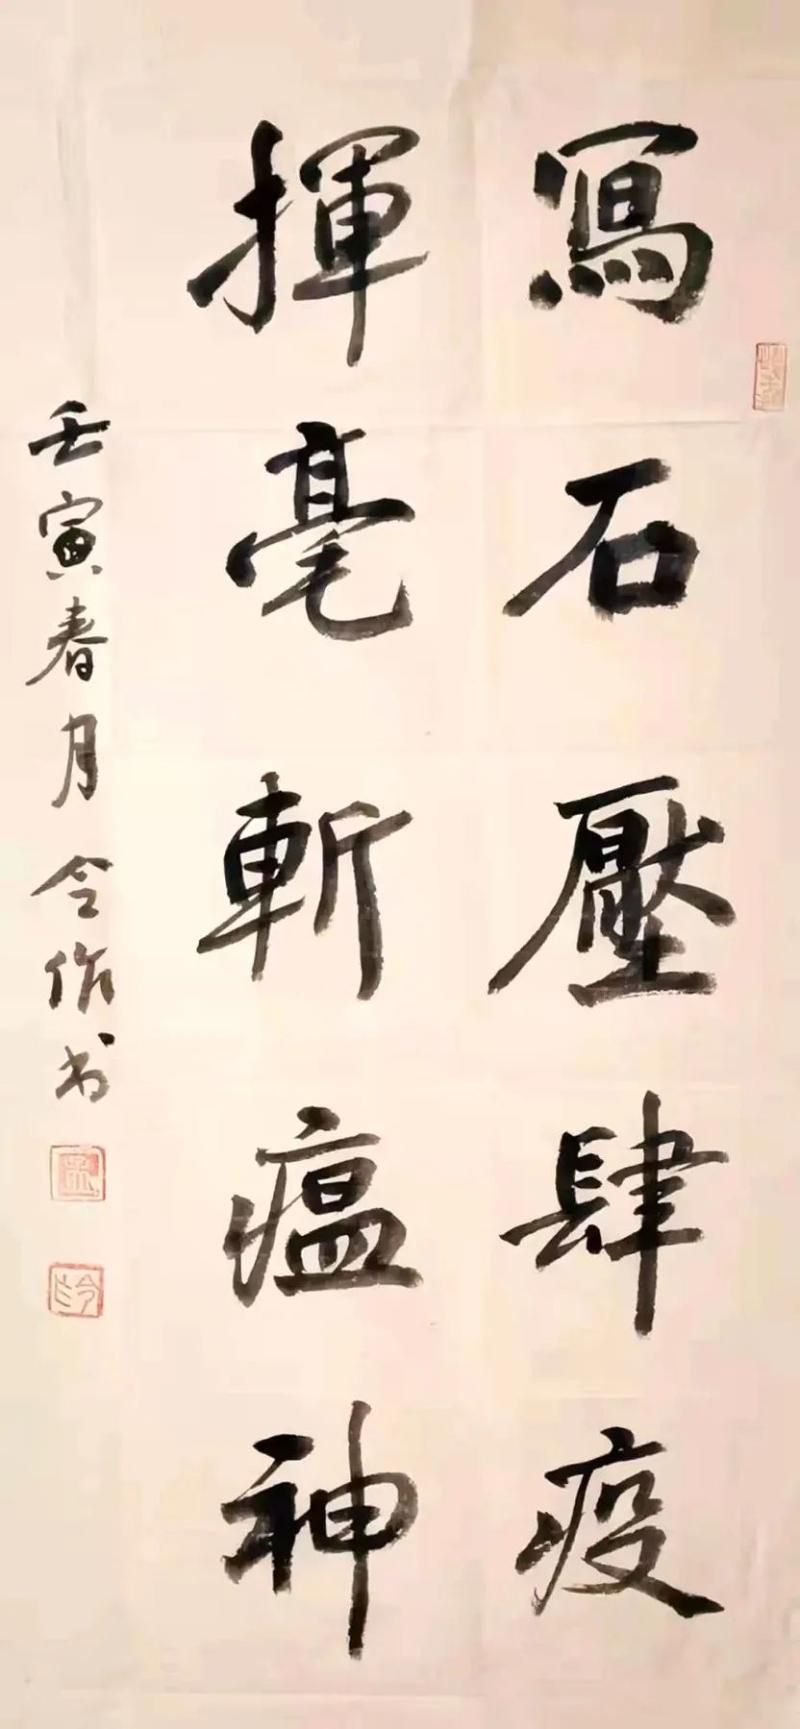 寫石壓肆疫
揮毫斬瘟神
壬寅春月令作书